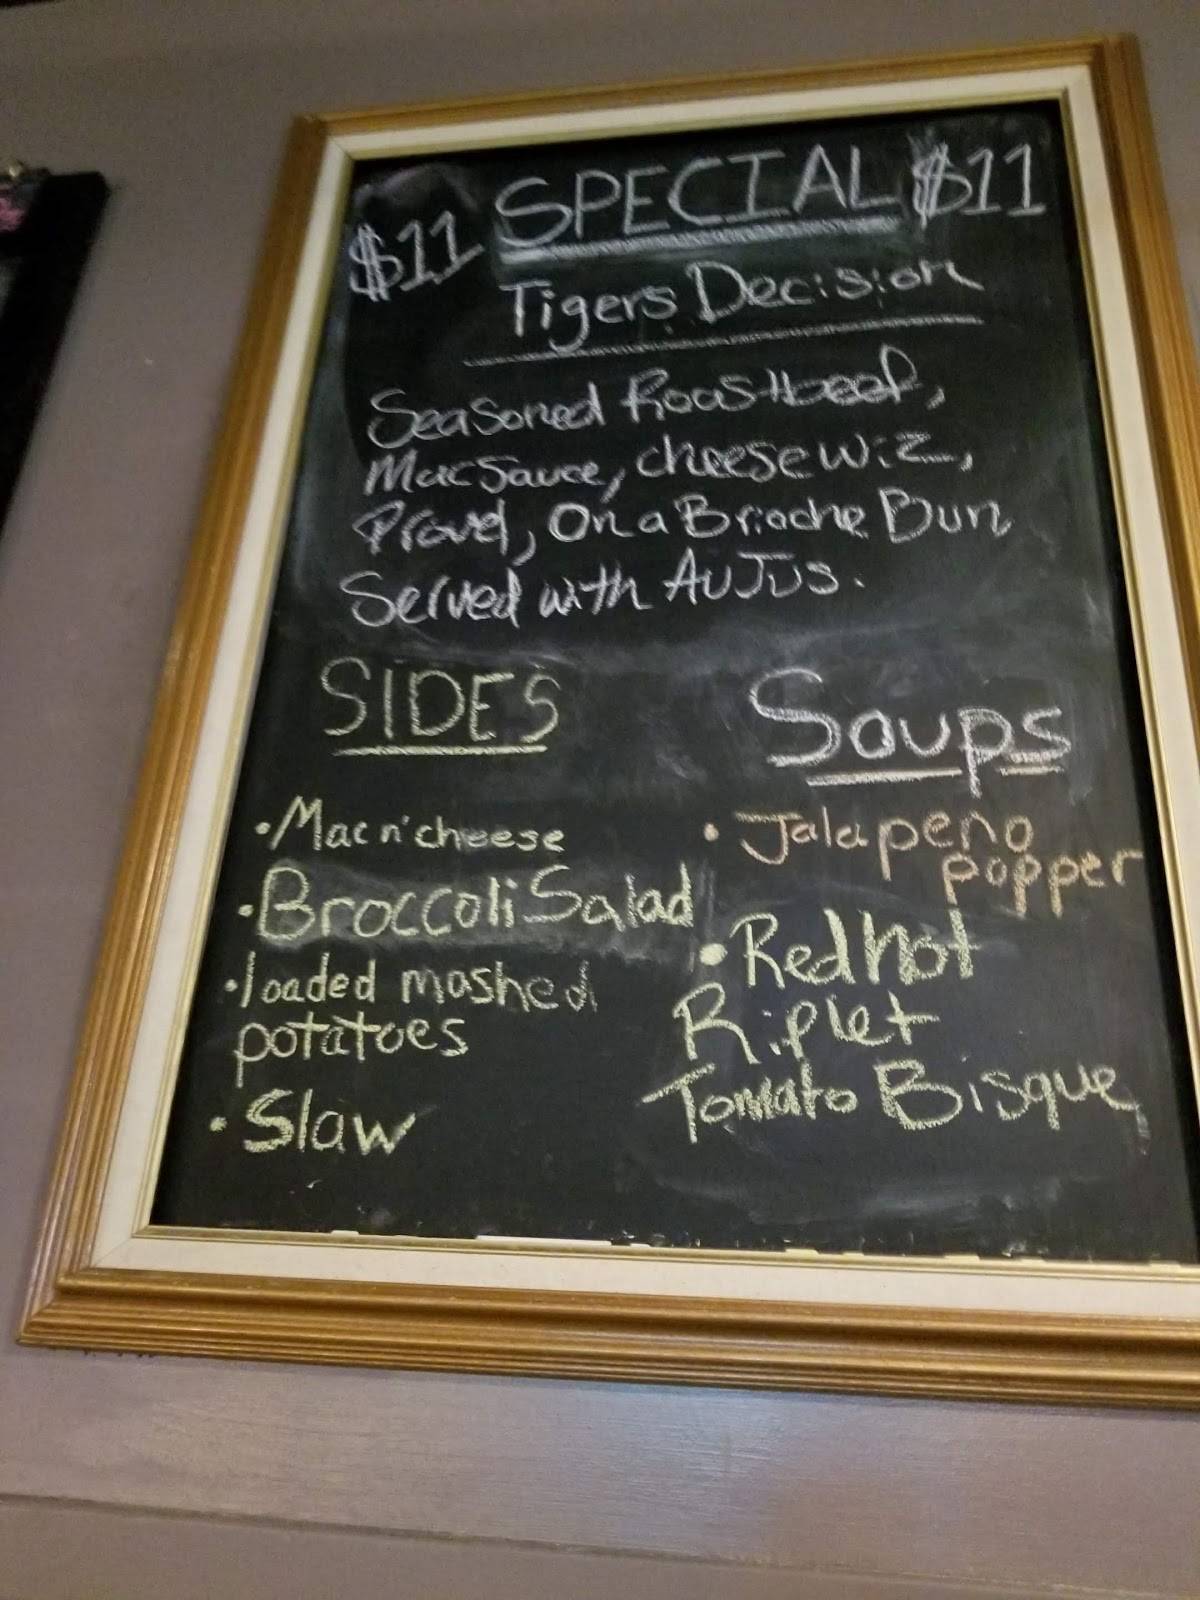 $11 SPECIAL $11
Tigers Decision
Seasoned Roastbeef,
Mac Sauce, cheese wiz,
Provel, On a Brioche Bun
Served with AUJUS.
SIDES
• Mac n' cheese
• Broccoli Salad
• loaded mashed
potatoes
• Slaw
Soups
• Jalapeno
popper
• Red hot
Riplet
Tomato Bisque